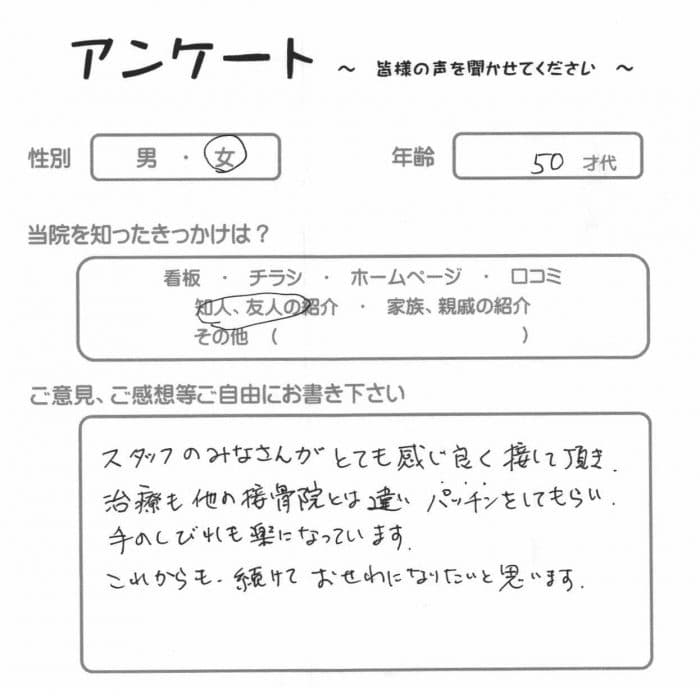 アンケート ~ 皆様の声を聞かせてください ~
性別 男 ・ 女 年齢 50 才代
当院を知ったきっかけは？
看板 ・ チラシ ・ ホームページ ・ 口コミ
知人、友人の紹介 ・ 家族、親戚の紹介
その他 （ ）
ご意見、ご感想等ご自由にお書き下さい
スタッフのみなさんがとても感じ良く接して頂き.
治療も他の接骨院とは違い パッチンをしてもらい.
手のしびれも楽になっています.
これからも、続けて おせわになりたいと思います.